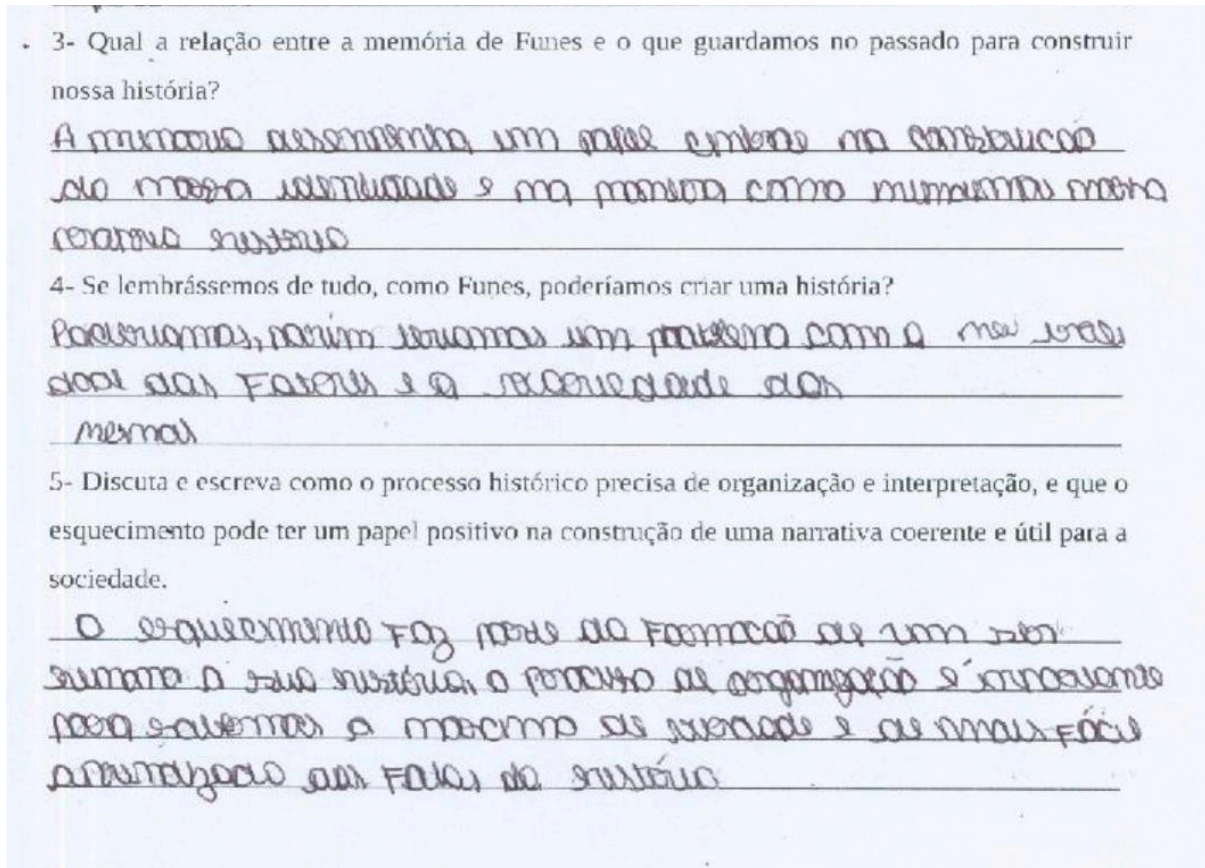 3- Qual a relação entre a memória de Funes e o que guardamos no passado para construir
nossa história?
A memoria desempenha um papel na construcão
da nossa identidade e na maneira como nossa
historia
4- Se lembrássemos de tudo, como Funes, poderíamos criar uma história?
Poderiamos, porém teriamos um problema com a
dos Fatores e a dos
mesmos
5- Discuta e escreva como o processo histórico precisa de organização e interpretação, e que o
esquecimento pode ter um papel positivo na construção de uma narrativa coerente e útil para a
sociedade.
O esquecimento Faz parte da Formacão de um ser
humano a sua história, o processo de organização é importante
para sabermos o maximo de verdade e de mais Fácil
aprendizado dos Fatos da história